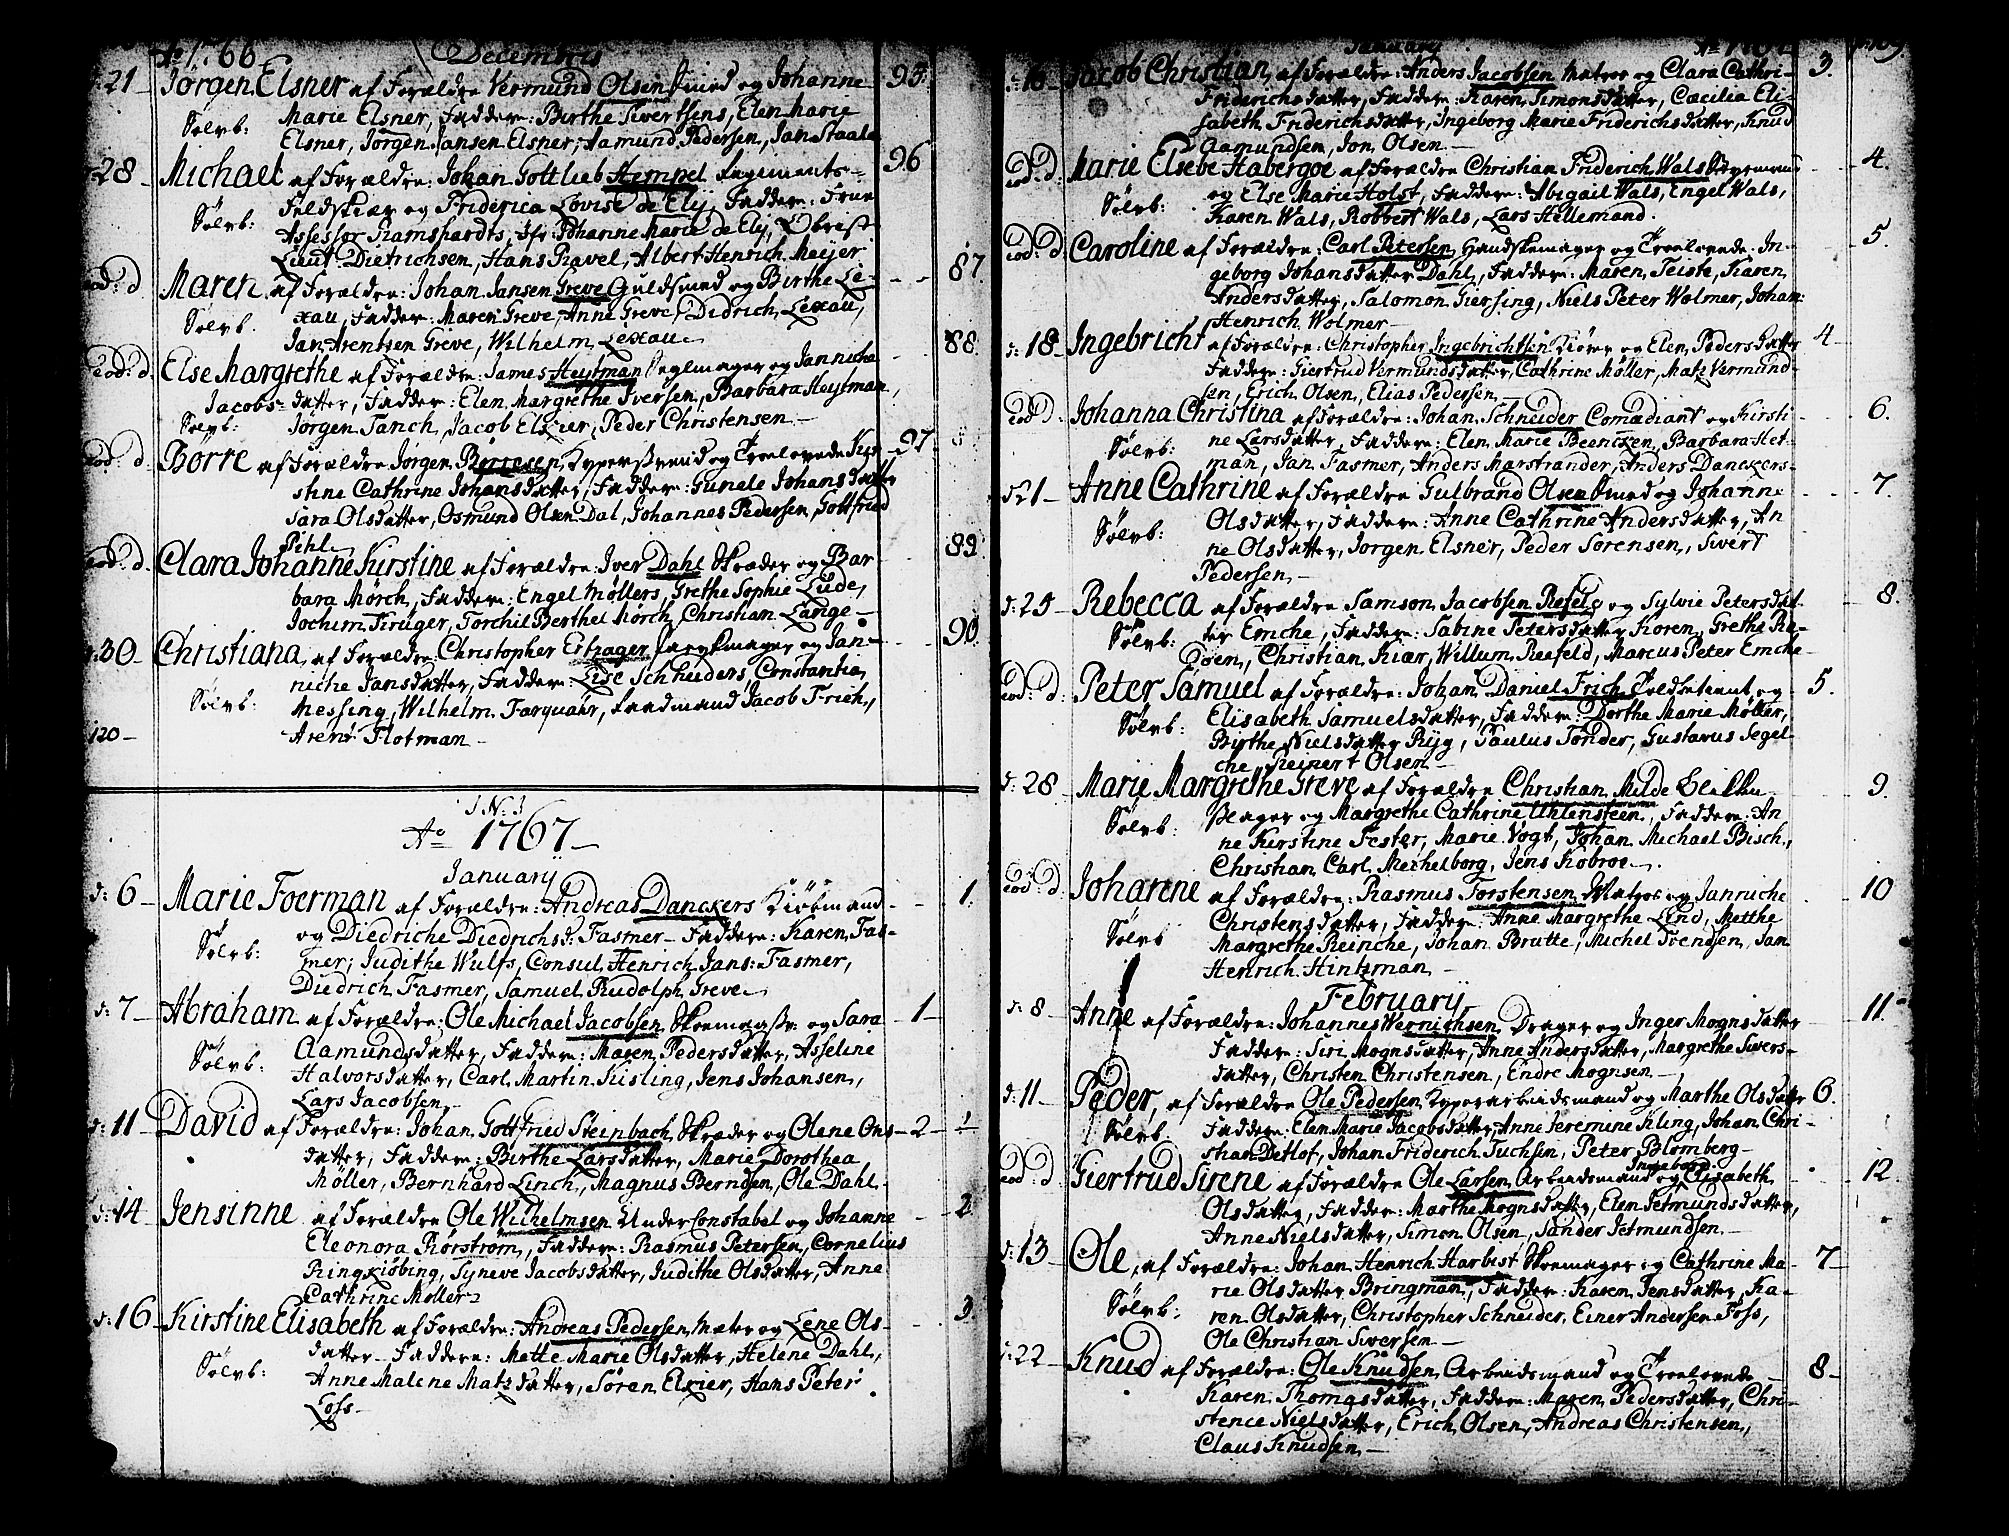 Ao 1766 Decembris
d:21 Jørgen Elsner af Forældre Vermund Olsen Smed og Johanne 95.
Marie Elsner, Faddere: Birthe Siwertsens, Elen Marie
Sølvb: Elsner, Jørgen Jansen Elsner, Aamund Pedersen, Jan Staale
d:28 Michael af Forældre: Johan Gottlieb Hempel Regiments- 96
Feldskiær og Friderica Lovise de Elÿ, Faddere: Frue
Sølvb: Assessor Ramshardts, Jfr Johanne Marie de Elÿ, Obrist
Lieut: Dietrichsen, Hans Ravel, Albert Henrich Meÿer
eod: d Maren af Forældre: Johan Jansen Greve Guldsmed og Birthe Le- 87
xau, Faddere: Maren Greve, Anne Greve, Didrich Lexau,
Sølvb. Jan Arentsen Greve, Wilhelm Lexau
eod: d. Else Margrethe af Forældre: James Heÿtman Seglmager og Janniche 88.
Jacobs-datter, Faddere: Elen Margrethe Iversen, Barbara Heÿtman,
Sølvb: Jørgen Tanch, Jacob Elxier, Peder Christensen
eod: d. Børre af Forældre Jørgen Børresen Kypersvend og Troelovede Kir- 97.
stine Cathrine Johansdatter, Faddere: Gunele Johansdatter
Sara Olsdatter, Osmund Olsen Dal, Johannes Pedersen, Gottfried
Pihl
eod: d. Clara Johanne Kirstine af Forældre: Iver Dahl Skræder og Bar- 89
bara Mørch, Faddere: Engel Møllers, Grethe Sophie Lude,
Jochim Krüger, Torchil Berthel Mörch, Christian Lange
d:30 Christiana af Forældre: Christopher Estrager Parykmager og Jan- 90.
niche Jansdatter, Faddere: Lise Schneiders, Constantia
Sølvb: Messing, Wilhelm Farquahr, Raadmand Jacob Frich,
120 Arent Flotman
J.N.J
Ao 1767
Januarÿ
d: 6 Marie Foerman af Forældre: Andreas Danckers Kiøbmand 1.
og Diedriche Diedrichsd: Fasmer Faddere: Karen Fas-
Sølvb: mer, Judithe Wulfs, Consul Henrich Jans: Fasmer,
Diedrich Fasmer, Samuel Rudolph Greve
d: 7 Abraham af Forældre: Ole Michael Jacobsen Skoemager og Sara 1
Aamundsdatter, Faddere: Maren Pedersdatter, Asseline
Sølvb: Halvorsdatter, Carl Martin Kisling, Jens Johansen,
Lars Jacobsen
d: 11 David af Forældre: Johan Gottfried Steinbach Skræder og Olene Ons- 2
datter, Faddere: Birthe Larsdatter, Marie Dorothea
Møller, Bernhard Linch, Magnus Berndsen, Ole Dahl
d: 14 Jensinne af Forældre Ole Wilhelmsen Under Constabel og Johanne 2
Eleonora Rørstrøm, Faddere: Rasmus Petersen, Cornelius
Ringkiøbing, Syneve Jacobsdatter, Judithe Olsdatter, Anne
Cathrine Møllers
d: 16 Kirstine Elisabeth af Forældre: Andreas Pedersen Matros og Lene Ols- 3
datter Faddere: Mette Marie Olsdatter, Helene Dahl,
Sølvb: Anne Malene Matzdatter, Søren Elxier, Hans Peter
Loss
Januarÿ
d: 16 Jacob Christian af Forældre: Anders Jacobsen Matros og Clara Cathri- 3.
Friderichsdatter, Faddere: Karen Simonsdatter, Cæcilia Eli-
sabeth Friderichsdatter, Ingeborg Marie Friderichsdatter, Knud
Aamundsen, Jon Olsen
eod: d: Marie Elsebe Habergoe af Forældre Christian Friderich Wals 4.
og Else Marie Holst, Faddere: Abigail Wals, Engel Wals,
Sølvb: Karen Wals, Robbert Wals, Lars Hillemand.
eod: d. Caroline af Forældre: Carl Petersen Handskemager og Troelovede: In- 5.
geborg Johansdatter Dahl, Faddere: Maren Teiste, Karen
Andersdatter, Salomon Giersing, Niels Peter Wolmer, Johan
Henrich Wolmer
d: 18 Ingebricht af Forældre: Christopher Ingebrichtsen Kiører og Elen Pedersdatter 4
Faddere: Giertrud Vermundsdatter, Cathrine Møller, Matz Vermund-
sen, Erich Olsen, Elias Pedersen
eod: d. Johanna Christina af Forældre: Johan Schneider Comædiant og Kirsti- 6.
ne Larsdatter, Faddere: Elen Marie Beencken, Barbara Het-
Sølvb: man, Jan Fasmer, Anders Marstrander, Anders Danckers
d: 21 Anne Cathrine af Forældre Gulbrand Olsen Smed og Johanne 7.
Olsdatter, Faddere: Anne Cathrine Andersdatter, An
Sølvb: ne Olsdatter, Jørgen Elsner, Peder Sørensen, Siwert
Pedersen
d: 25 Rebecca af Forældre Samson Jacobsen Refeld og Sylvie Petersdat- 8.
Sølvb: ter Emche, Faddere: Sabine Petersdatter Koren, Grethe Ra-
Doen, Christian Kiær, Willum Reefeld, Marcus Peter Emche
eod: d. Peter Samuel af Forældre: Johan Daniel Frich Toldbetient og 5.
Elisabeth Samuelsdatter, Faddere: Dorthe Marie Møller,
Sølvb: Birthe Nielsdatter Ryg, Paulus Tønder, Gustavus Segel-
che, Reinert Olsen
d: 28 Marie Margrethe Greve af Forældre Christian Milde 9.
og Margrethe Cathrine Uhlensteen, Faddere: An
Sølvb: ne Kirstine Fester, Marie Vogt, Johan Michael Bisch,
Christian Carl Mechelborg, Jens Kobroe
eod: d. Johanne af Forældre: Rasmus Torstensen Matros og Janniche 10
Christensdatter, Faddere: Anne Margrethe Lind, Metthe
Sølvb Margrethe Reinche, Johan Brutte, Michel Svendsen, Jan
Henrich Hintzman
Februarÿ
d: 8 Anne af Forældre: Johannes Wernichsen Drager og Inger Mognsdatter 11
Faddere: Siri Mognsdatter, Anne Andersdatter, Margrethe Siwers-
datter, Christen Christensen, Endre Mognsen
d: 11 Peder, af Forældre Ole Pedersen Kyperarbeidsmand og Marthe Olsdatter 6.
Sølvb Faddere: Elen Marie Jacobsdatter, Anne Jeremine Kling, Johan Chri-
stian Detlof, Johan Friderich Tuchsen, Peter Blomberg
eod: d Giertrud Sirene af Forældre Ole Larsen Arbeidsmand og Ingeborg Elisabeth 12.
Olsdatter, Faddere: Marthe Mognsdatter, Elen Jetmundsdatter,
Anne Nielsdatter, Simon Olsen, Sander Jetmundsen
d: 13 Ole, af Forældre: Johan Henrich Harbest Skoemager og Cathrine Ma- 7
rie Olsdatter Bringman, Faddere: Karen Jensdatter, Ka-
Sølvb: ren Olsdatter, Christopher Schneider, Einer Andersen Foss,
Ole Christian Siversen
d: 22 Knud af Forældre: Ole Knudsen Arbeidsmand og Troelovede 8
Karen Thomasdatter, Faddere: Maren Pedersdatter, Chri-
stence Nielsdatter, Erich Olsen, Andreas Christensen,
Claus Knudsen